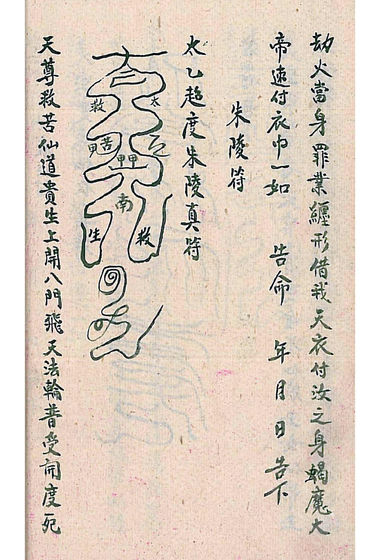 劫火當身罪業纏形借我天衣付汝之身蝎魔大
帝速付衣巾一如 告命 年月日告下
朱陵符
太乙超度朱陵真符
太 乙
救 苦
南
生 救
天尊救苦仙道貴生上開八門飛天法輪普受開度死